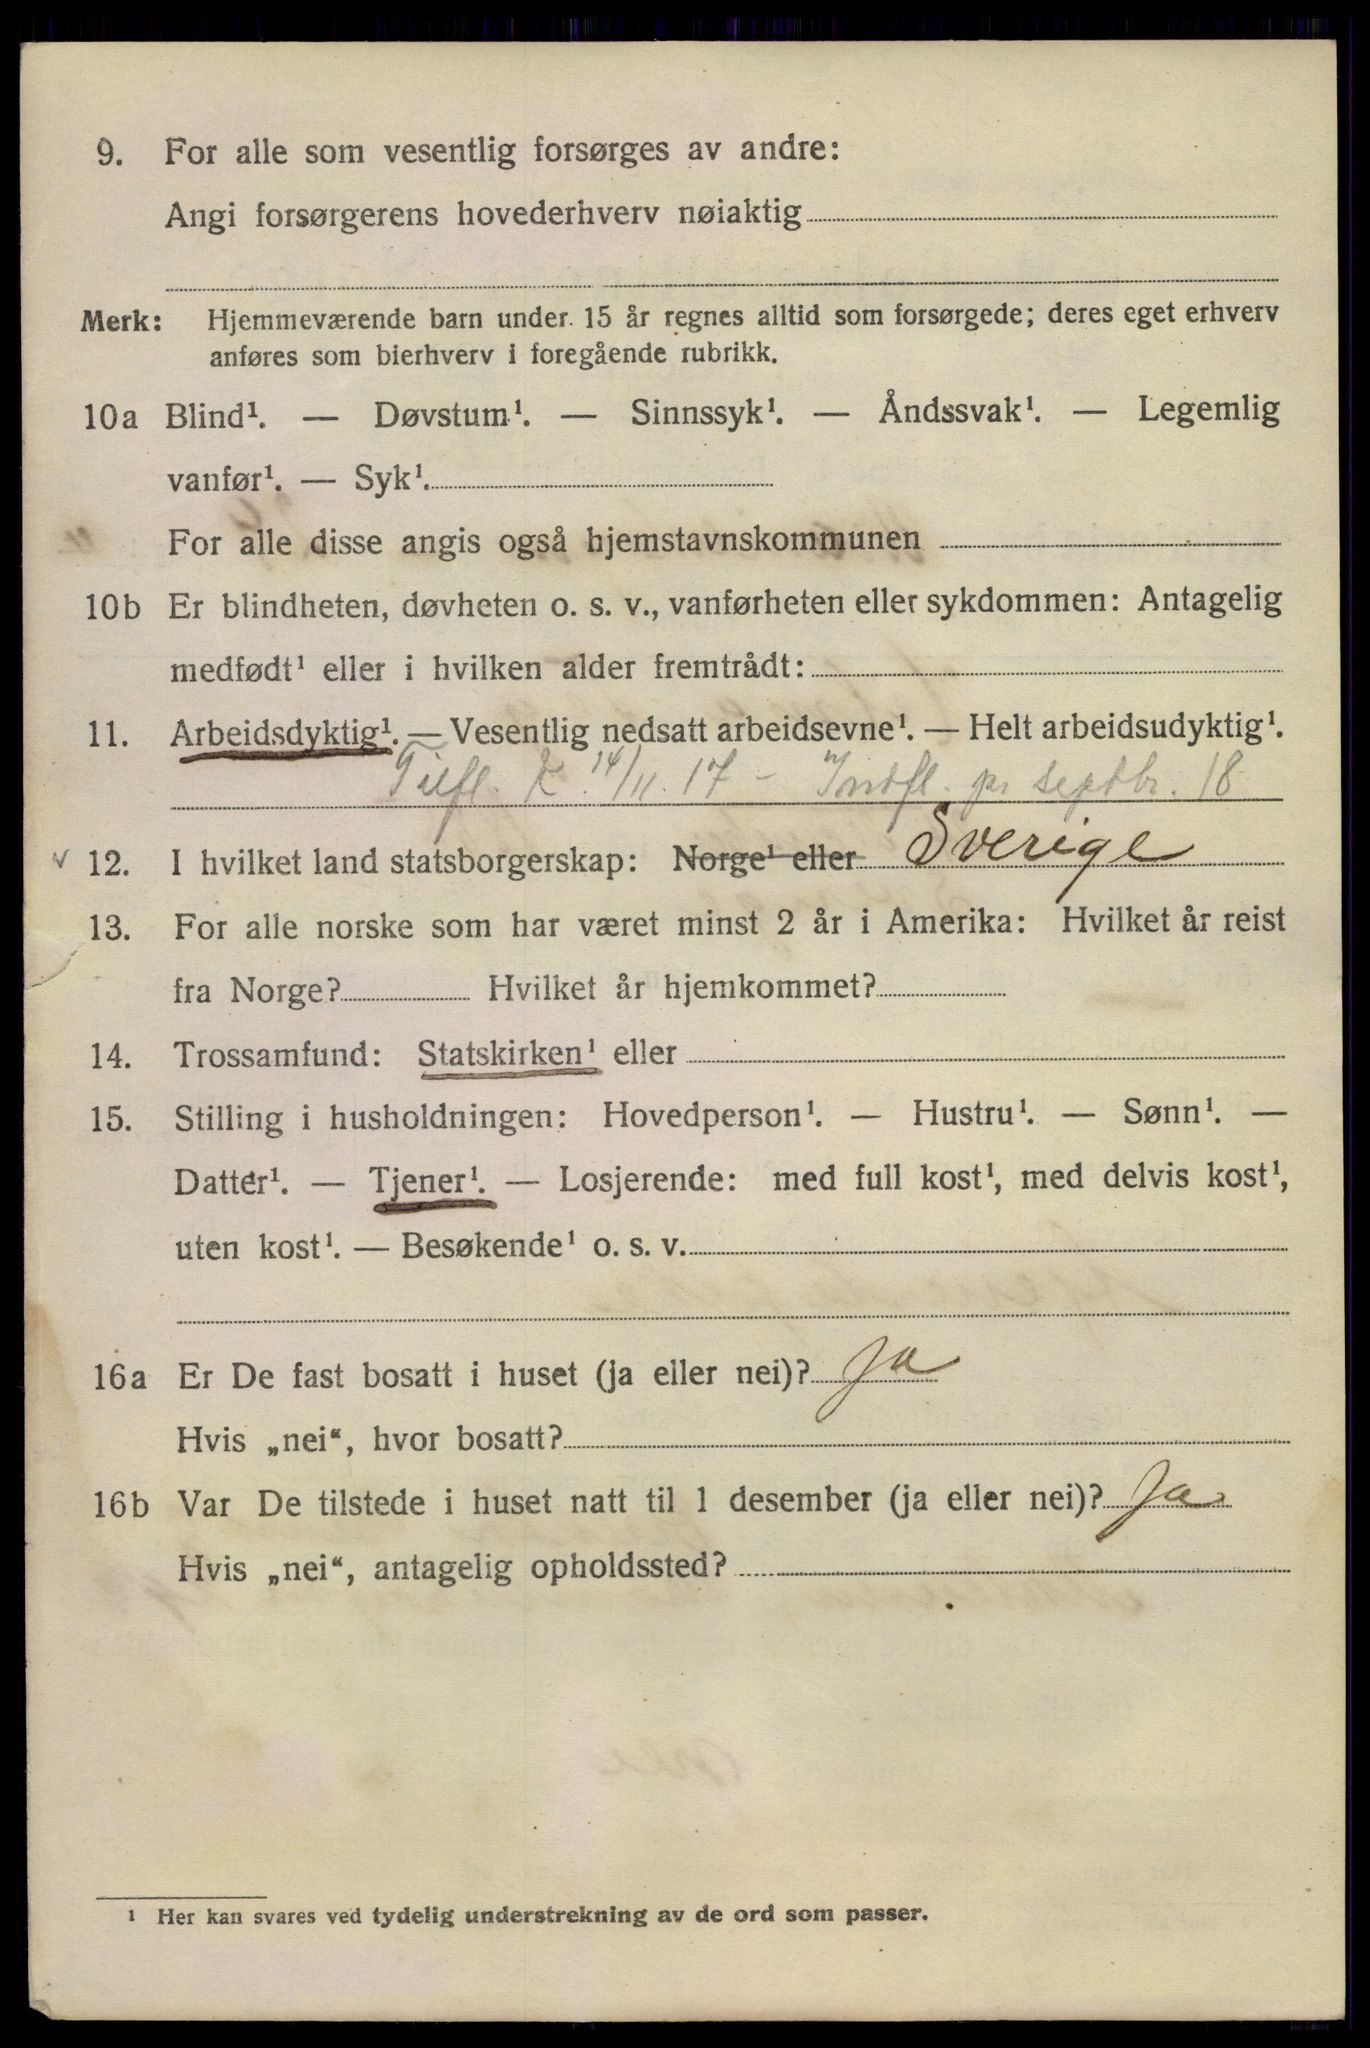 9. For alle som vesentlig forsørges av andre:
Angi forsørgerens hovederhverv nøiaktig
Merk: Hjemmeværende barn under 15 år regnes alltid som forsørgede; deres eget erhverv
anføres som bierhverv i foregående rubrikk.
10a Blind¹. — Døvstum¹. — Sinnssyk¹. — Åndssvak¹. — Legemlig
vanfør¹. — Syk¹.
For alle disse angis også hjemstavnskommunen
10b Er blindheten, døvheten o. s. v., vanførheten eller sykdommen: Antagelig
medfødt¹ eller i hvilken alder fremtrådt:
11. Arbeidsdyktig¹. — Vesentlig nedsatt arbeidsevne¹. — Helt arbeidsudyktig¹.
Tilfl. K. 14/11. 17 - Indfl. pr septbr. 18
12. I hvilket land statsborgerskap: Norge¹ eller Sverige
13. For alle norske som har været minst 2 år i Amerika: Hvilket år reist
fra Norge? Hvilket år hjemkommet?
14. Trossamfund: Statskirken¹ eller
15. Stilling i husholdningen: Hovedperson¹. — Hustru¹. — Sønn¹. —
Datter¹. — Tjener¹. — Losjerende: med full kost¹, med delvis kost¹,
uten kost¹. — Besøkende¹ o. s. v.
16a Er De fast bosatt i huset (ja eller nei)? Ja
Hvis „nei“, hvor bosatt?
16b Var De tilstede i huset natt til 1 desember (ja eller nei)? Ja
Hvis „nei“, antagelig opholdssted?
¹ Her kan svares ved tydelig understrekning av de ord som passer.